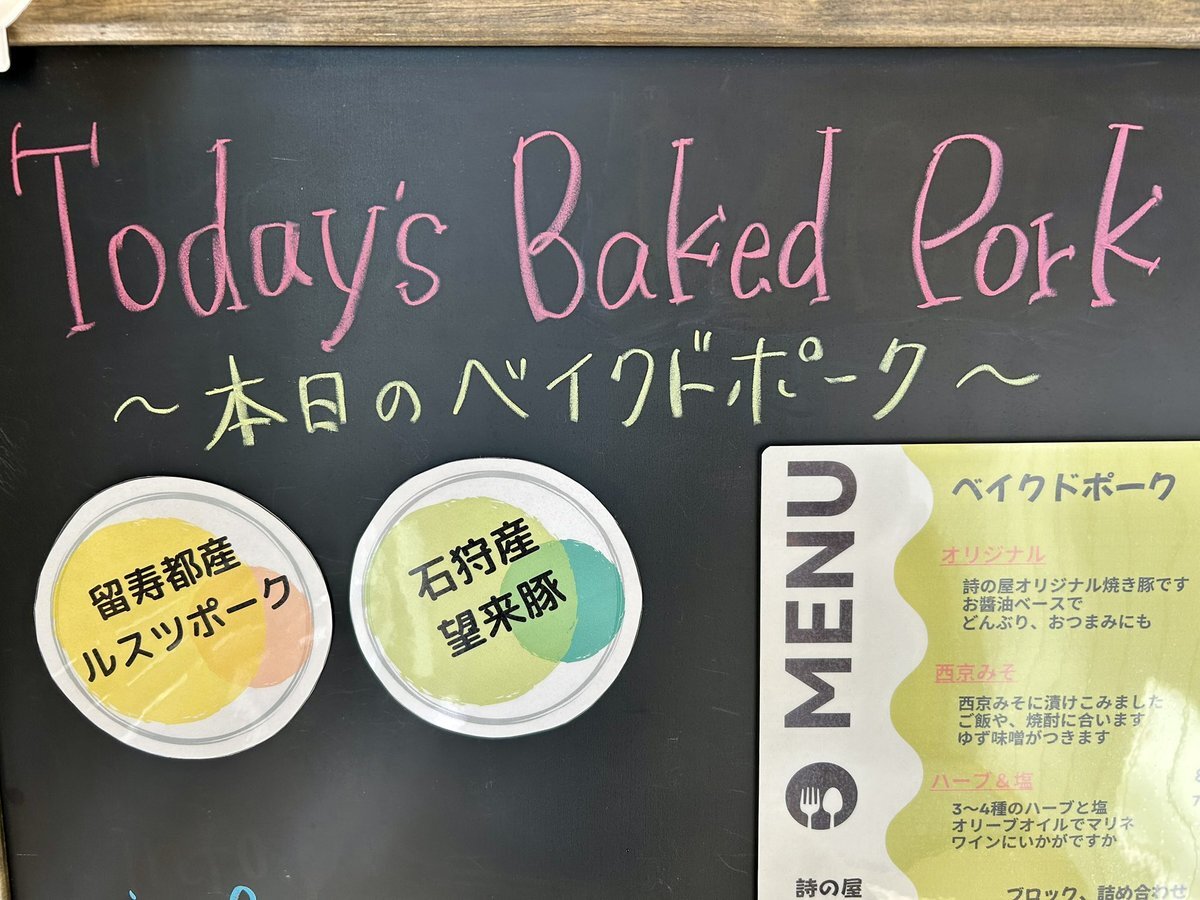 Today's Baked Pork
～本日のベイクドポーク～
留寿都産
ルスツポーク
石狩産
望来豚
MENU
ベイクドポーク
オリジナル
詩の屋オリジナル焼き豚です
お醤油ベースで
どんぶり、おつまみにも
西京みそ
西京みそに漬けこみました
ご飯や、焼酎に合います
ゆず味噌がつきます
ハーブ＆塩
3〜4種のハーブと塩
オリーブオイルでマリネ
ワインにいかがですか
詩の屋
ブロック、詰め合わせ